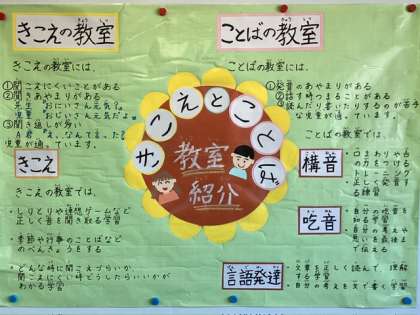 きこえの教室
きこえの教室には、
①聞こえにくいことがある
②聞きあやまりがある
先生「おにいさん元気?」
児童「おじいさん元気だよ」
③聞き返しが多い
「え、なんて言った?」
児童が通っています。
きこえ
きこえの教室では、
・しりとりや連想ゲームなど
正しく音を聞き取る学習
・季節や行事のことばなど
のべんきょうをする
・どんな時に聞こえづらいか
聞こえにくい時どうしたらいいかが
わかる学習
きこえとことば
教室
紹介
ことばの教室
ことばの教室には、
①発音のあやまりがある
②話す時つまることがある
③読んだり書いたりするのが苦手
な児童が通っています。
ことばの教室では、
構音
・口まわりや舌
の力をつける
トレーニング
・正しく発音する
練習
吃音
・自分の吃音を
知る学習
・自分の思いや
思考を最後
まで伝える
言語発達
・文章を正しく読んで、理解
する学習
・自分の考えを文で書く学習